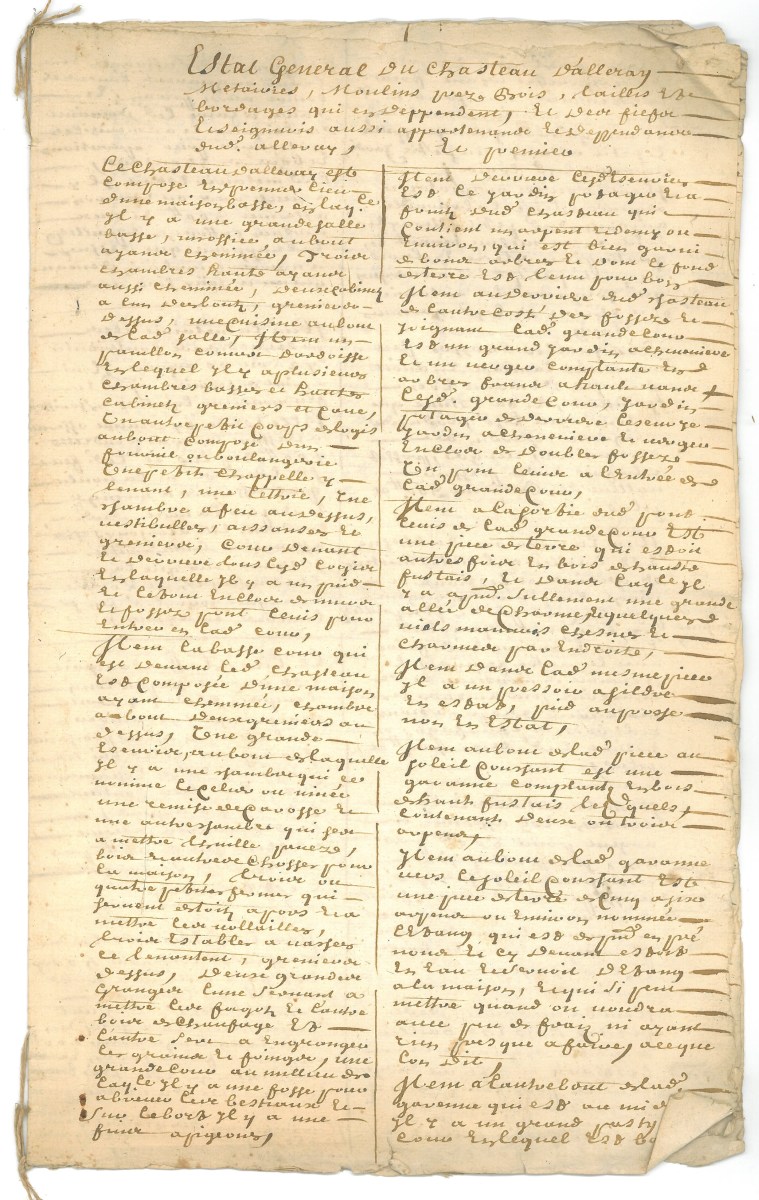 Estat General du Chasteau d'alleray
Metairies, Moulins prez Bois, taillis Et
bordages qui en deppendent, Et des fiefs
Et seigneuries aussi appartenans Et deppendances
dud. alleray,
Et premier
Le Chasteau dalleray est
composé En premier lieu
d'une maison basse, En laq.le
Il y a une grande salle
basse, un office au bout
ayant cheminée, Trois
chambres haute ayans
aussi cheminée, deux cabinets
a l'un des bouts, greniers au
dessus, une cuisine au bout
de lad. salle, Item un
pavillon couvert d'ardoisse
En lequel Il y a plusieurs
chambres basses et hauttes
cabinets greniers et cave,
Un autre petit corps de logis
au bout composé d'un
fournil ou boulangerie
Une petite chappelle y
tenant, une laitrie, Une
chambre a feu au dessus,
vestibulles, aisances Et
greniers, Cour devant
Et derriere tous lesd. logis
En laquelle Il y a un puid
Et le tout Enclos de murs
Et fossez pont levis pour
Entrer en lad. cour,
Item la basse cour qui
est devant led. chasteau
Est Composée d'une maison
ayant cheminée, chambre
a bout deux greniers au
dessus, Une grande
Escurie, au bout de laquelle
Il y a une chambre qui se
nomme le celier ou vinée
une remise de carosse Et
une autre chambre qui sert
a mettre
bois Et autres choses pour
la maison, trois ou
quatre petites fermes qui
servent de toits a porcs Et a
mettre les vollailles,
trois Estables a vaches
se tenant, greniers
dessus, deux grandes
Granges l'une servant a
mettre les fagots Et l'autre
bois de chaufage Et
l'autre sert a Engranger
les grains Et foinages, une
grande cour au millieu de
laq.le Il y a une fosse pour
abreuver les bestiaux Et
sur le bord Il y a une
fuie a pigeons,
Item derriere lesd. Escuries
Est le jardin potager Et a
fruits dud. chasteau qui
contient un arpent Et demy ou
Environ, qui est bien garni
de bons arbres Et dont le fond
de terre Est tenu pour bon
Item au derriere dud. chasteau
de l'autre costé des fossez Et
joignant lad. grande cour
Est un grand jardin a cheneviere
Et un verger complanté en
arbres francs a haute
lesd. grande cour, jardin
potager de derriere les
jardin a cheneviere Et verger
Enclos de doubles fossez
Un pont levis a l'Entrée de
lad. grande cour,
Item a la sortie dud. pont
levis de lad. grande cour Est
une piece de terre qui estoit
autres fois En bois de hauste
fustais, Et dans laq.le Il
y a apnt. seullement une grande
allée de charme, Et quelques
viels mauvais chesnes Et
charmes par Endroits,
Item dans lad. mesme piece
Il a un pressoir a sildre
En estat, puid au
non En Estat,
Item au bout de lad. piece au
soleil Coussant est une
garanne complantz En bois
de haut fustais lesquels,
contenant deux ou trois
arpens,
Item au bout de lad. garanne
vers le soleil Coussant Est
une piece de terre de cinq a six
arpens ou Environ nommée
l'Etang, qui est de pnt en pré
nons Et cy devant estoit
En Eau Et servoit d'Etang
a la maison, Et qui si peut
mettre quand on voudra
avec peu de frais, ni ayant
rien presque a faire, a ce que
l'on dit,
Item a l'autre bout de lad.
garenne qui est au mi
Il y a un grand
cour En lequel Est